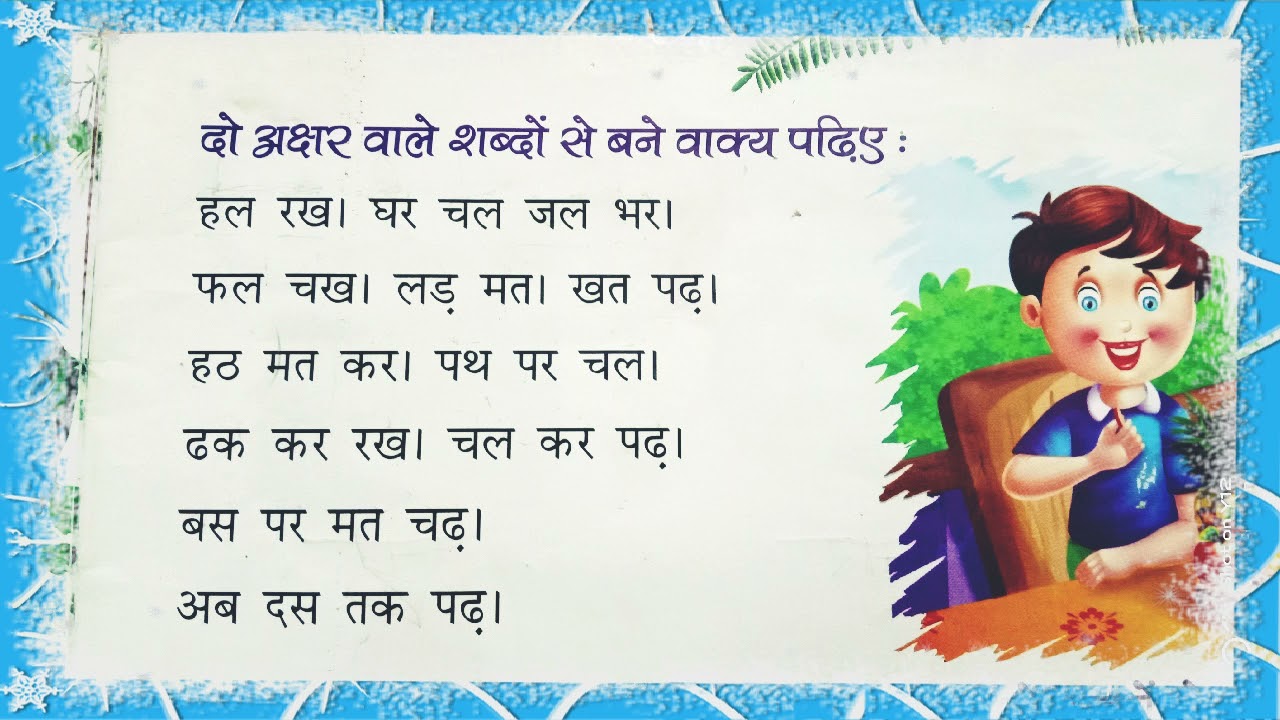 दो अक्षर वाले शब्दों से बने वाक्य पढ़िए :
हल रख। घर चल जल भर।
फल चख। लड़ मत। खत पढ़।
हठ मत कर। पथ पर चल।
ढक कर रख। चल कर पढ़।
बस पर मत चढ़।
अब दस तक पढ़।